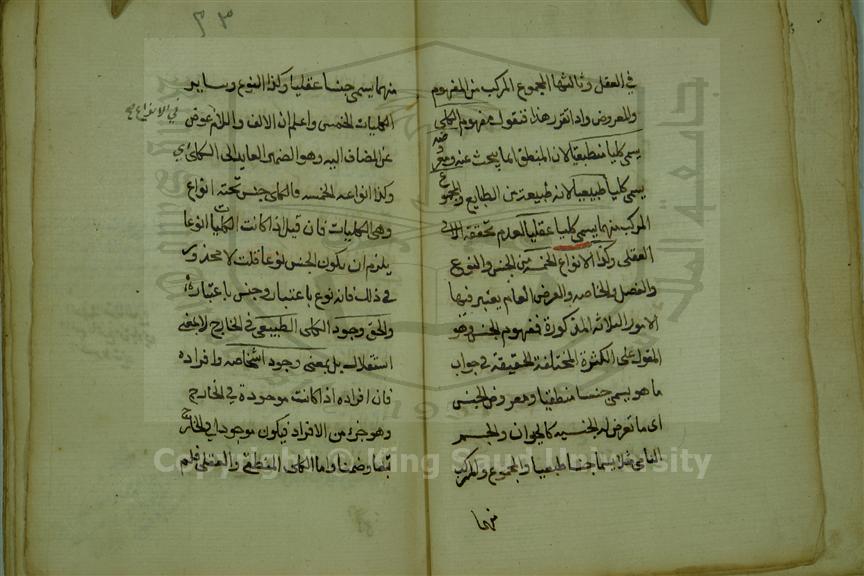 ٢٣
في العقل وثالثها المجموع المركب من المفهوم
والمعروض واذا تقرر هذا فنقول مفهوم الكلي
يسمى كليا منطقيا لان المنطقي انما يبحث عنه ومعروضه
يسمى كليا طبيعيا لانه طبيعة من الطبايع والمجموع
المركب منهما يسمى كليا عقليا لعدم تحققه الا في
العقل وكذا الانواع الخمسة من الجنس والنوع
والفصل والخاصه والعرض العام يعتبر فيها
الامور الثلاثه المذكورة فمفهوم الجنس وهو
المقول على الكثرة المختلفة الحقيقه في جواب
ما هو يسمى جنسا منطقيا ومعروض الجنس
اى ما تعرض له الجنسيه كالحيوان والجسم
النامي مثلا يسما جنسا طبعيا والمجموع والمركب
منهما
منهما يسمى جنسا عقليا وكذا النوع وساير
الكليات الخمس واعلم ان الالف واللام عوض
في الانواع
عن المضاف اليه وهو الضمير العايد الى الكلى اي
وكذا انواعه الخمسه فالكلى جنس تحته انواع
وهى الكليات فان قيل اذا كانت الكليات انواعا
يلزم ان يكون الجنس نوعا قلت لا محذور
في ذلك فانه نوع باعتبار وجنس باعتبار
والحق وجود الكلى الطبيعي في الخارج لا بمعنى
استقلاله بل بمعنى وجود اشخاصه وافراده
فان افراده اذا كانت موجودة في الخارج
وهو جزء من الافراد فيكون موجودا في الخارج
تبعا وضمنا واما الكلى المنطقي والعقلى فلم
Copyright © King Saud University
جامعة الملك